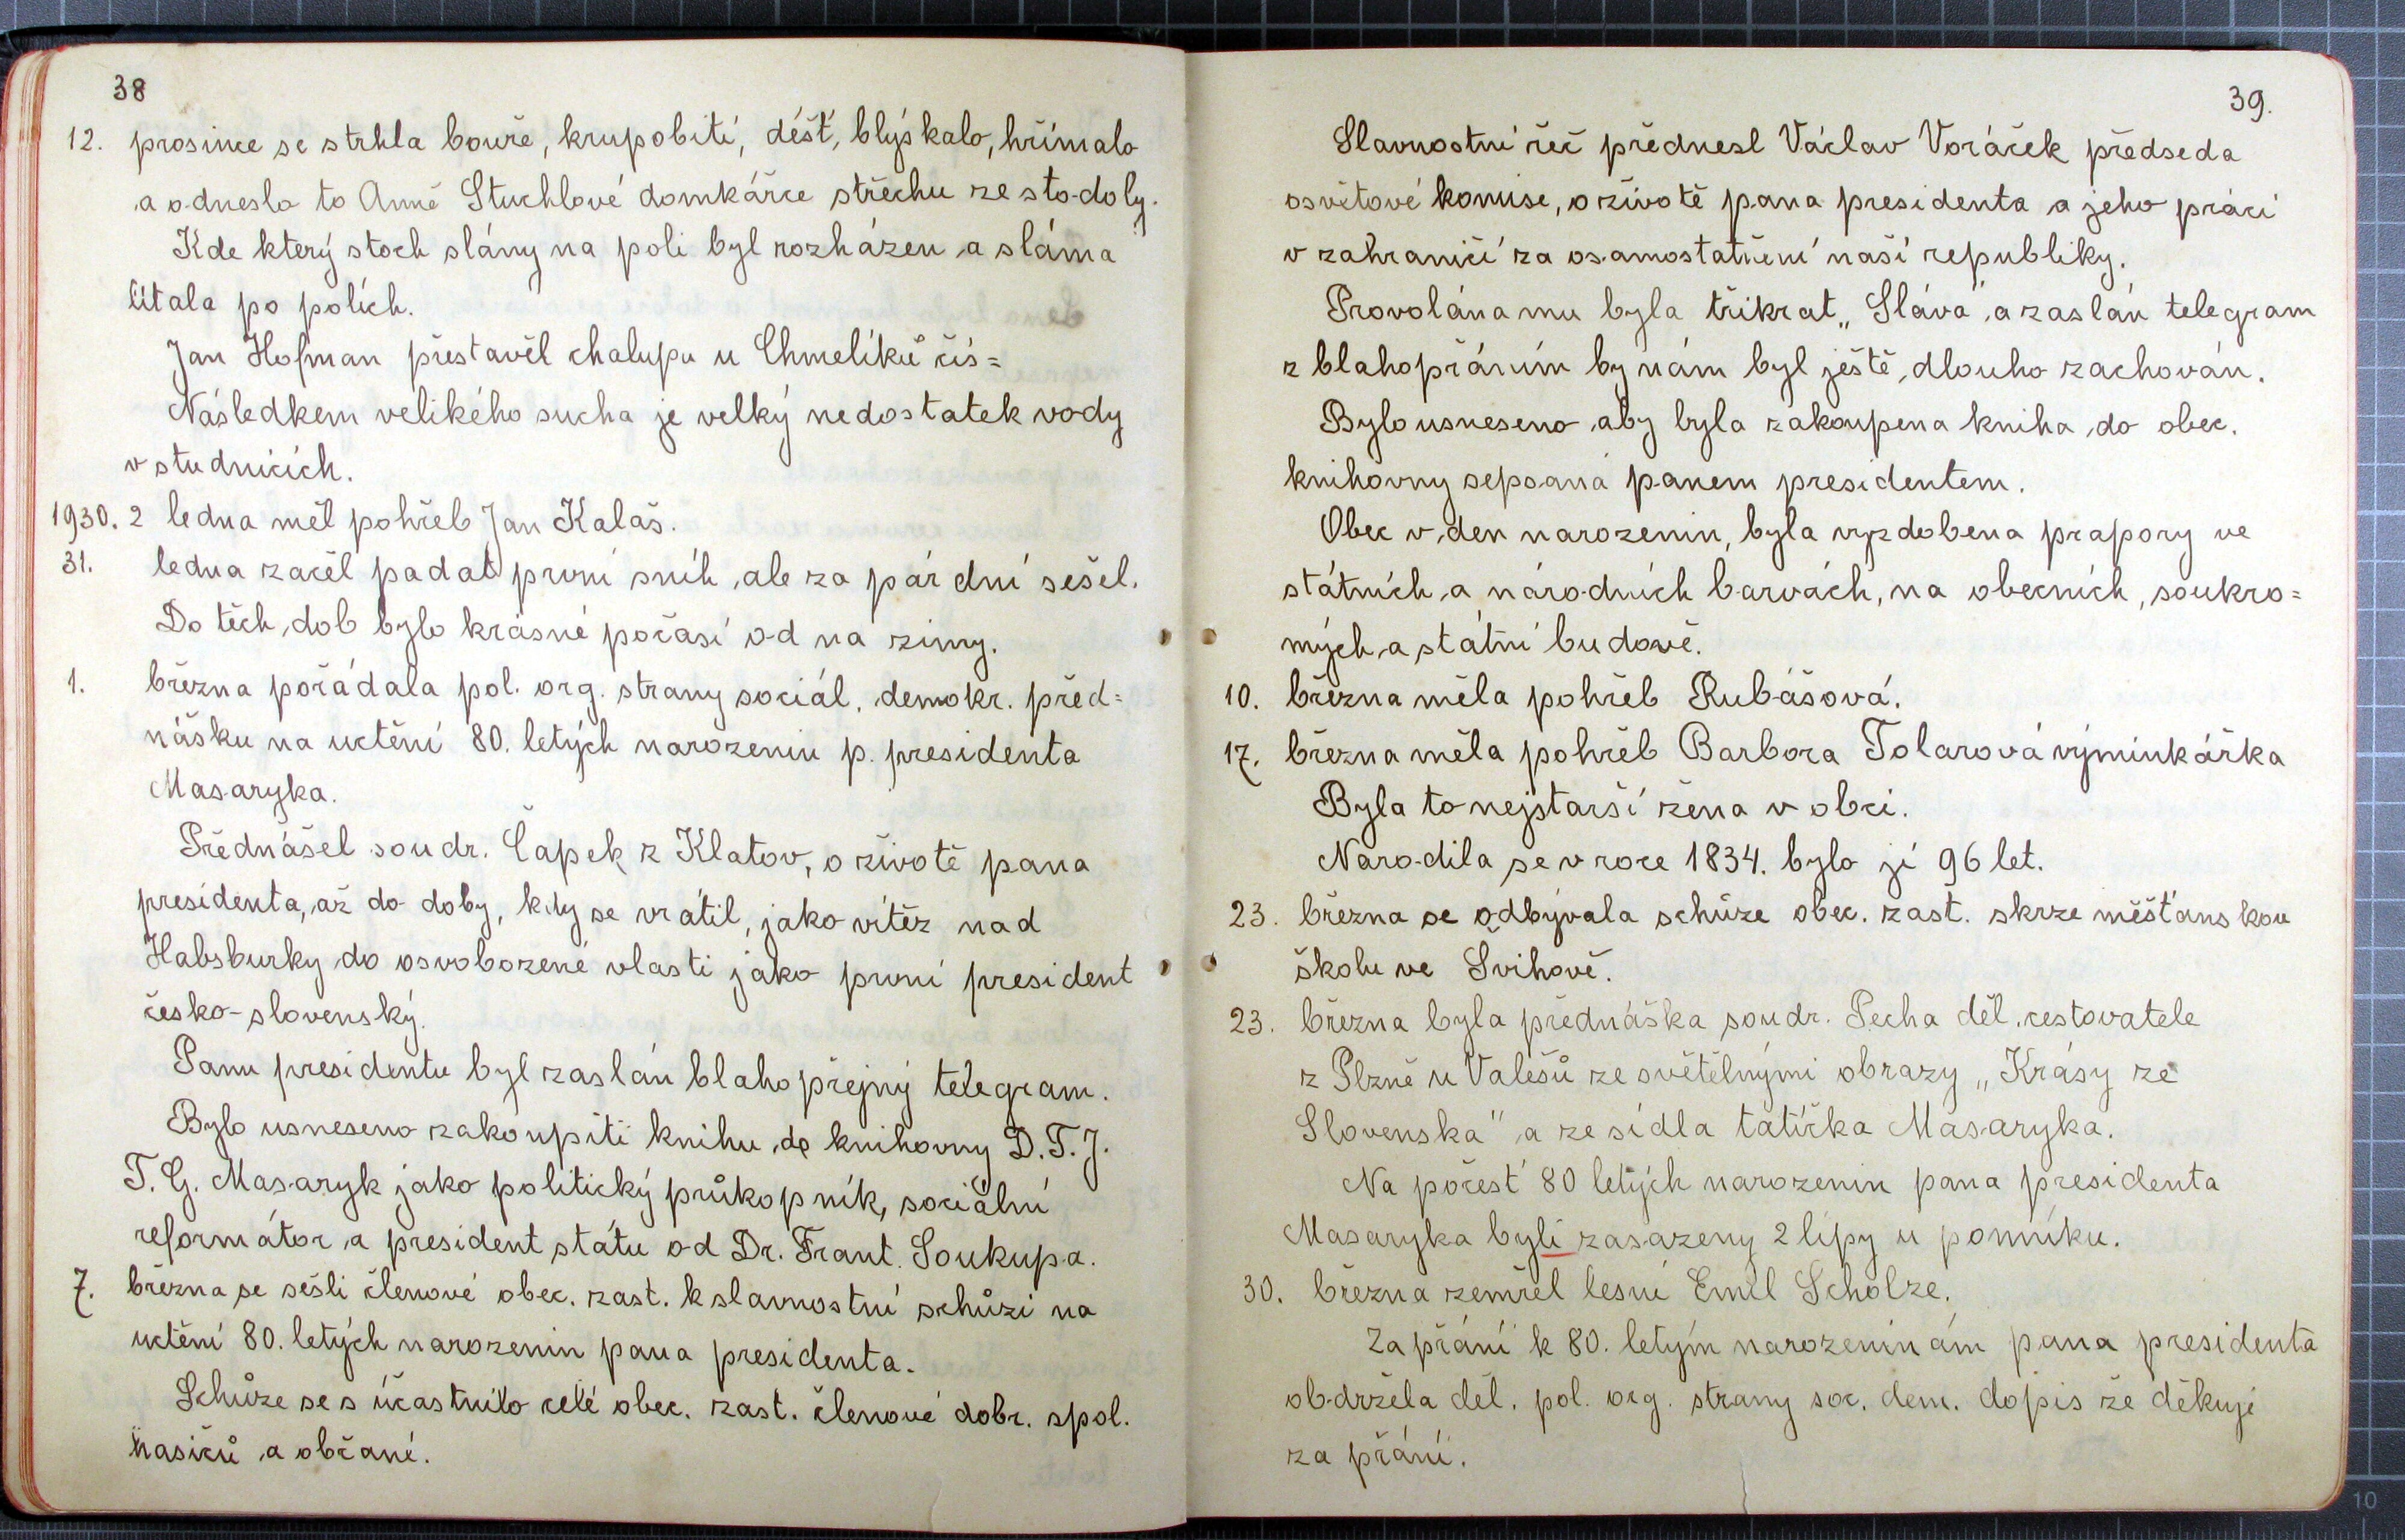 38
12. prosince se strhla bouře, krupobití, déšť, blýskalo, hřímalo
a odneslo to Anně Stuchlové domkářce střechu ze stodoly.
Kde který stoch slámy na poli byl rozházen a sláma
lítala po polích.
Jan Hofman přestavěl chalupu u Chmelíků čís=
Následkem velikého sucha je velký nedostatek vody
v studnicích.
1930. 2 ledna měl pohřeb Jan Kalaš.
31. ledna začěl padat první sníh, ale za pár dní sešel.
Do těch dob bylo krásné počasí od na zimy.
1. března pořádala pol. org. strany sociál. demokr. před=
nášku na uctění 80. letých narozenin p. presidenta
Masaryka.
Přednášel soudr. Čapek z Klatov, o životě pana
presidenta, až do doby, kdy se vrátil, jako vítěz nad
Habsburky do osvobozené vlasti jako první president
česko-slovenský.
Panu presidentu byl zaslán blahopřejný telegram.
Bylo usneseno zakoupiti knihu do knihovny D.T.J.
T. G. Masaryk jako politický průkopník, sociální
reformátor a president státu od Dr. Frant. Soukupa.
7. března se sešli členové obec. zast. k slavnostní schůzi na
uctění 80. letých narozenin pana presidenta.
Schůze se súčastnilo celé obec. zast. členové dobr. spol.
hasičů a občané.
39.
Slavnostní řeč přednesl Václav Voráček předseda
osvětové komise, o životě pana presidenta a jeho práci
v zahraničí za osamostatnění naší republiky.
Provolána mu byla třikrat „Sláva a zaslán telegram
z blahopřáním by nám byl ještě dlouho zachován.
Bylo usneseno aby byla zakoupena kniha do obec.
knihovny sepsaná panem presidentem.
Obec v den narozenin, byla vyzdobena prapory ve
státních a národních barvách, na obecních, soukro=
mých a státní budově.
10. března měla pohřeb Rubášová.
17. března měla pohřeb Barbora Tolarová výminkářka
Byla to nejstarší žena v obci.
Narodila se v roce 1834. bylo jí 96 let.
23. března se odbývala schůze obec. zast. skrze měšťanskou
školu ve Švihově.
23. března byla přednáška soudr. Pecha děl. cestovatele
z Plzně u Valešů ze světělnými obrazy „Krásy ze
Slovenska" a ze sídla tatíčka Masaryka.
Na počest 80 letých narozenin pana presidenta
Masaryka byli zasazeny 2 lípy u pomníku.
30. března zemřel lesní Emil Scholze.
Za přání k 80. letým narozeninám pana presidenta
obdržela děl. pol. org. strany soc. dem. dopis že děkuje
za přání.
10